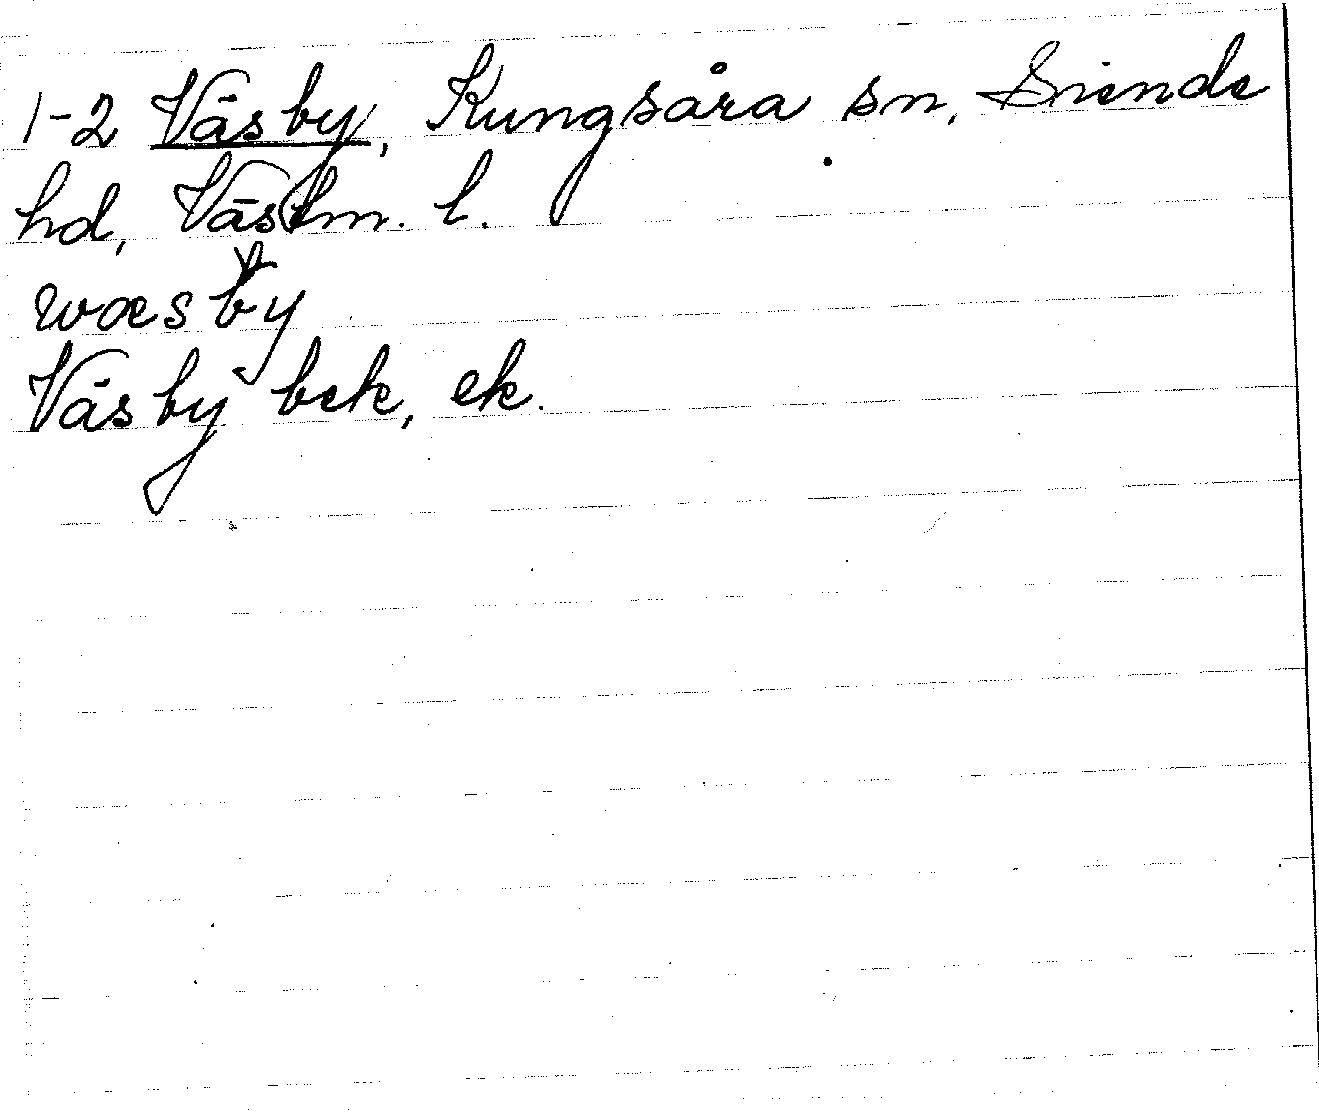 1-2 Väsby, Kungsåra sn, Siende
hd, Västm. l.
wæsby
Väsby bek, ek.